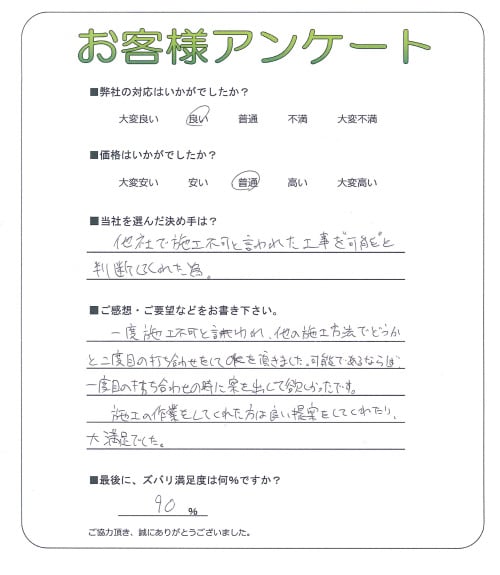 お客様アンケート
■弊社の対応はいかがでしたか?
大変良い 良い 普通 不満 大変不満
■価格はいかがでしたか?
大変安い 安い 普通 高い 大変高い
■当社を選んだ決め手は?
他社で施工不可と言われた工事を"可能"と
判断してくれた為。
■ご感想・ご要望などをお書き下さい。
一度施工不可と言われ、他の施工方法でどうか
と二度目の打ち合わせをしてOKを頂きました。可能であるならば、
一度目の打ち合わせの時に案を出して欲しかったです。
施工の作業をしてくれた方は良い提案をしてくれたり、
大満足でした。
■最後に、ズバリ満足度は何%ですか?
90 %
ご協力頂き、誠にありがとうございました。